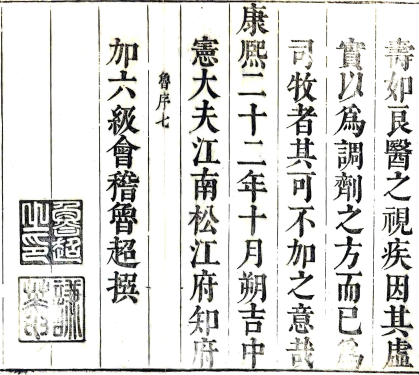 壽如良醫之視疾因其虛
實以爲調劑之方而已爲
司牧者其可不加之意哉
康熙二十二年十月朔吉中
憲大夫江南松江府知府
魯序七
加六級會稽魯超撰
魯超之印